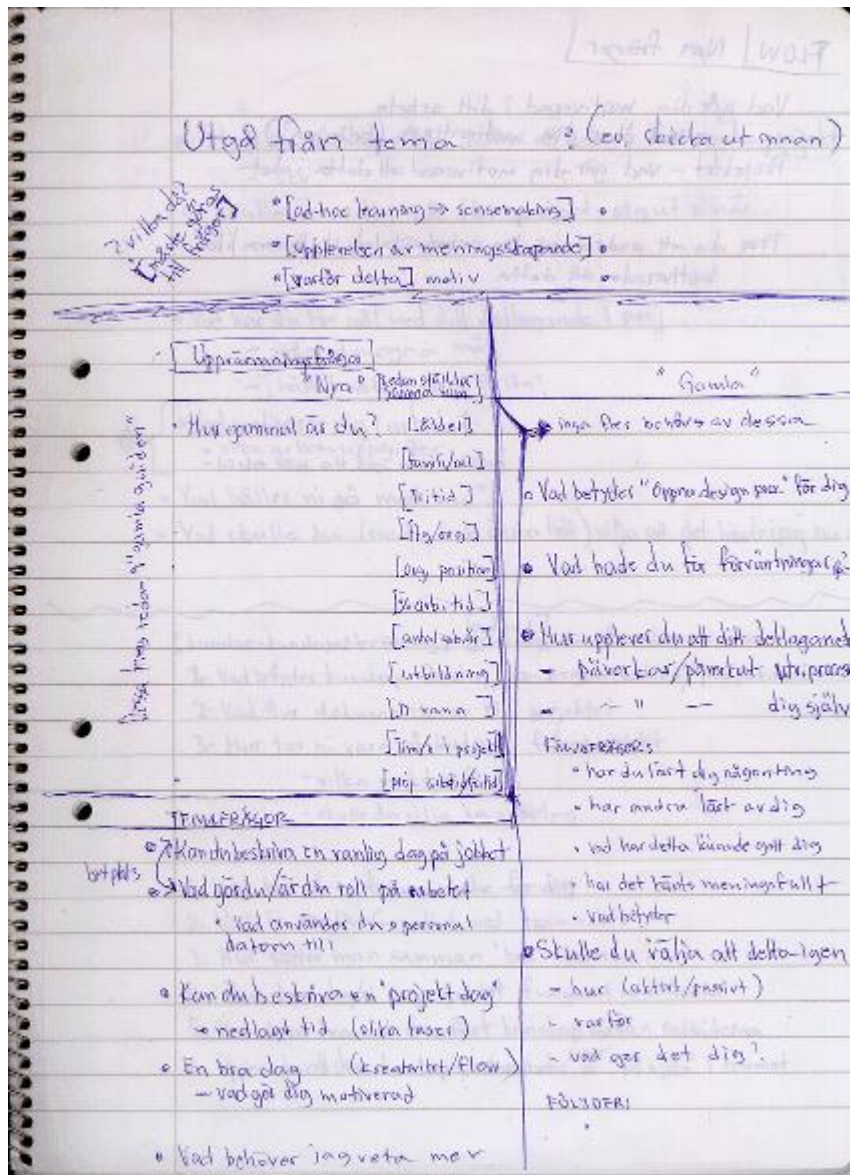 Utgå från tema : (ev. skicka ut innan)
? vilka då?
[måste göras till frågor]
• [ad-hoc learning → sensemaking] •
• [upplevelsen av meningsskapande] •
• [varför delta] motiv •
[Uppvärmningsfrågor]
"Nya"
• Hur gammal är du? [ålder]
[familj/rel]
[fritid]
[org. position]
[utbildning]
projekt]
"gamla guiden"
"Gamla"
inga fler behövs av dessa
• Vad betyder "öppna design för dig
• Vad hade du för förväntningar?
• Hur upplever du att ditt deltagande
- påverkar/påverkat
— " — dig själv
FÖLJDFRÅGOR:
• har du lärt dig någonting
• har andra lärt av dig
• vad har detta lärande gett dig
• har det känts meningsfullt
• vad betyder
• Skulle du välja att delta igen
- hur (aktivt/passivt)
- varför
- vad ger det dig?
FÖLJDFR:
TEMAFRÅGOR
• Kan du beskriva en vanlig dag på jobbet
• Vad gör du/är din roll på arbetet
• Vad använder du personal
datorn till
• Kan du beskriva en "projektdag"
→ nedlagt tid (olika faser)
• En bra dag (kreativitet/flow)
- vad gör dig motiverad
• Vad behöver jag veta mer